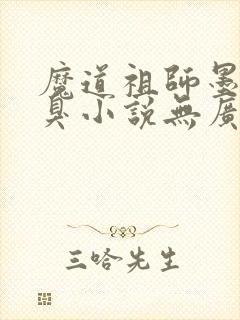 魔道祖師墨
臭小說無廣
三哈先生